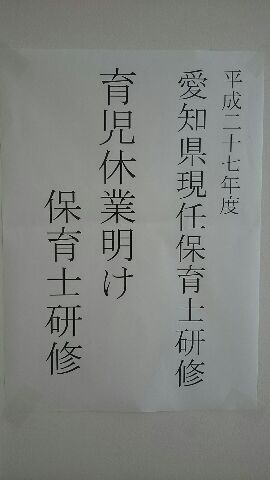 平成二十七年度
愛知県現任保育士研修
育児休業明け
保育士研修